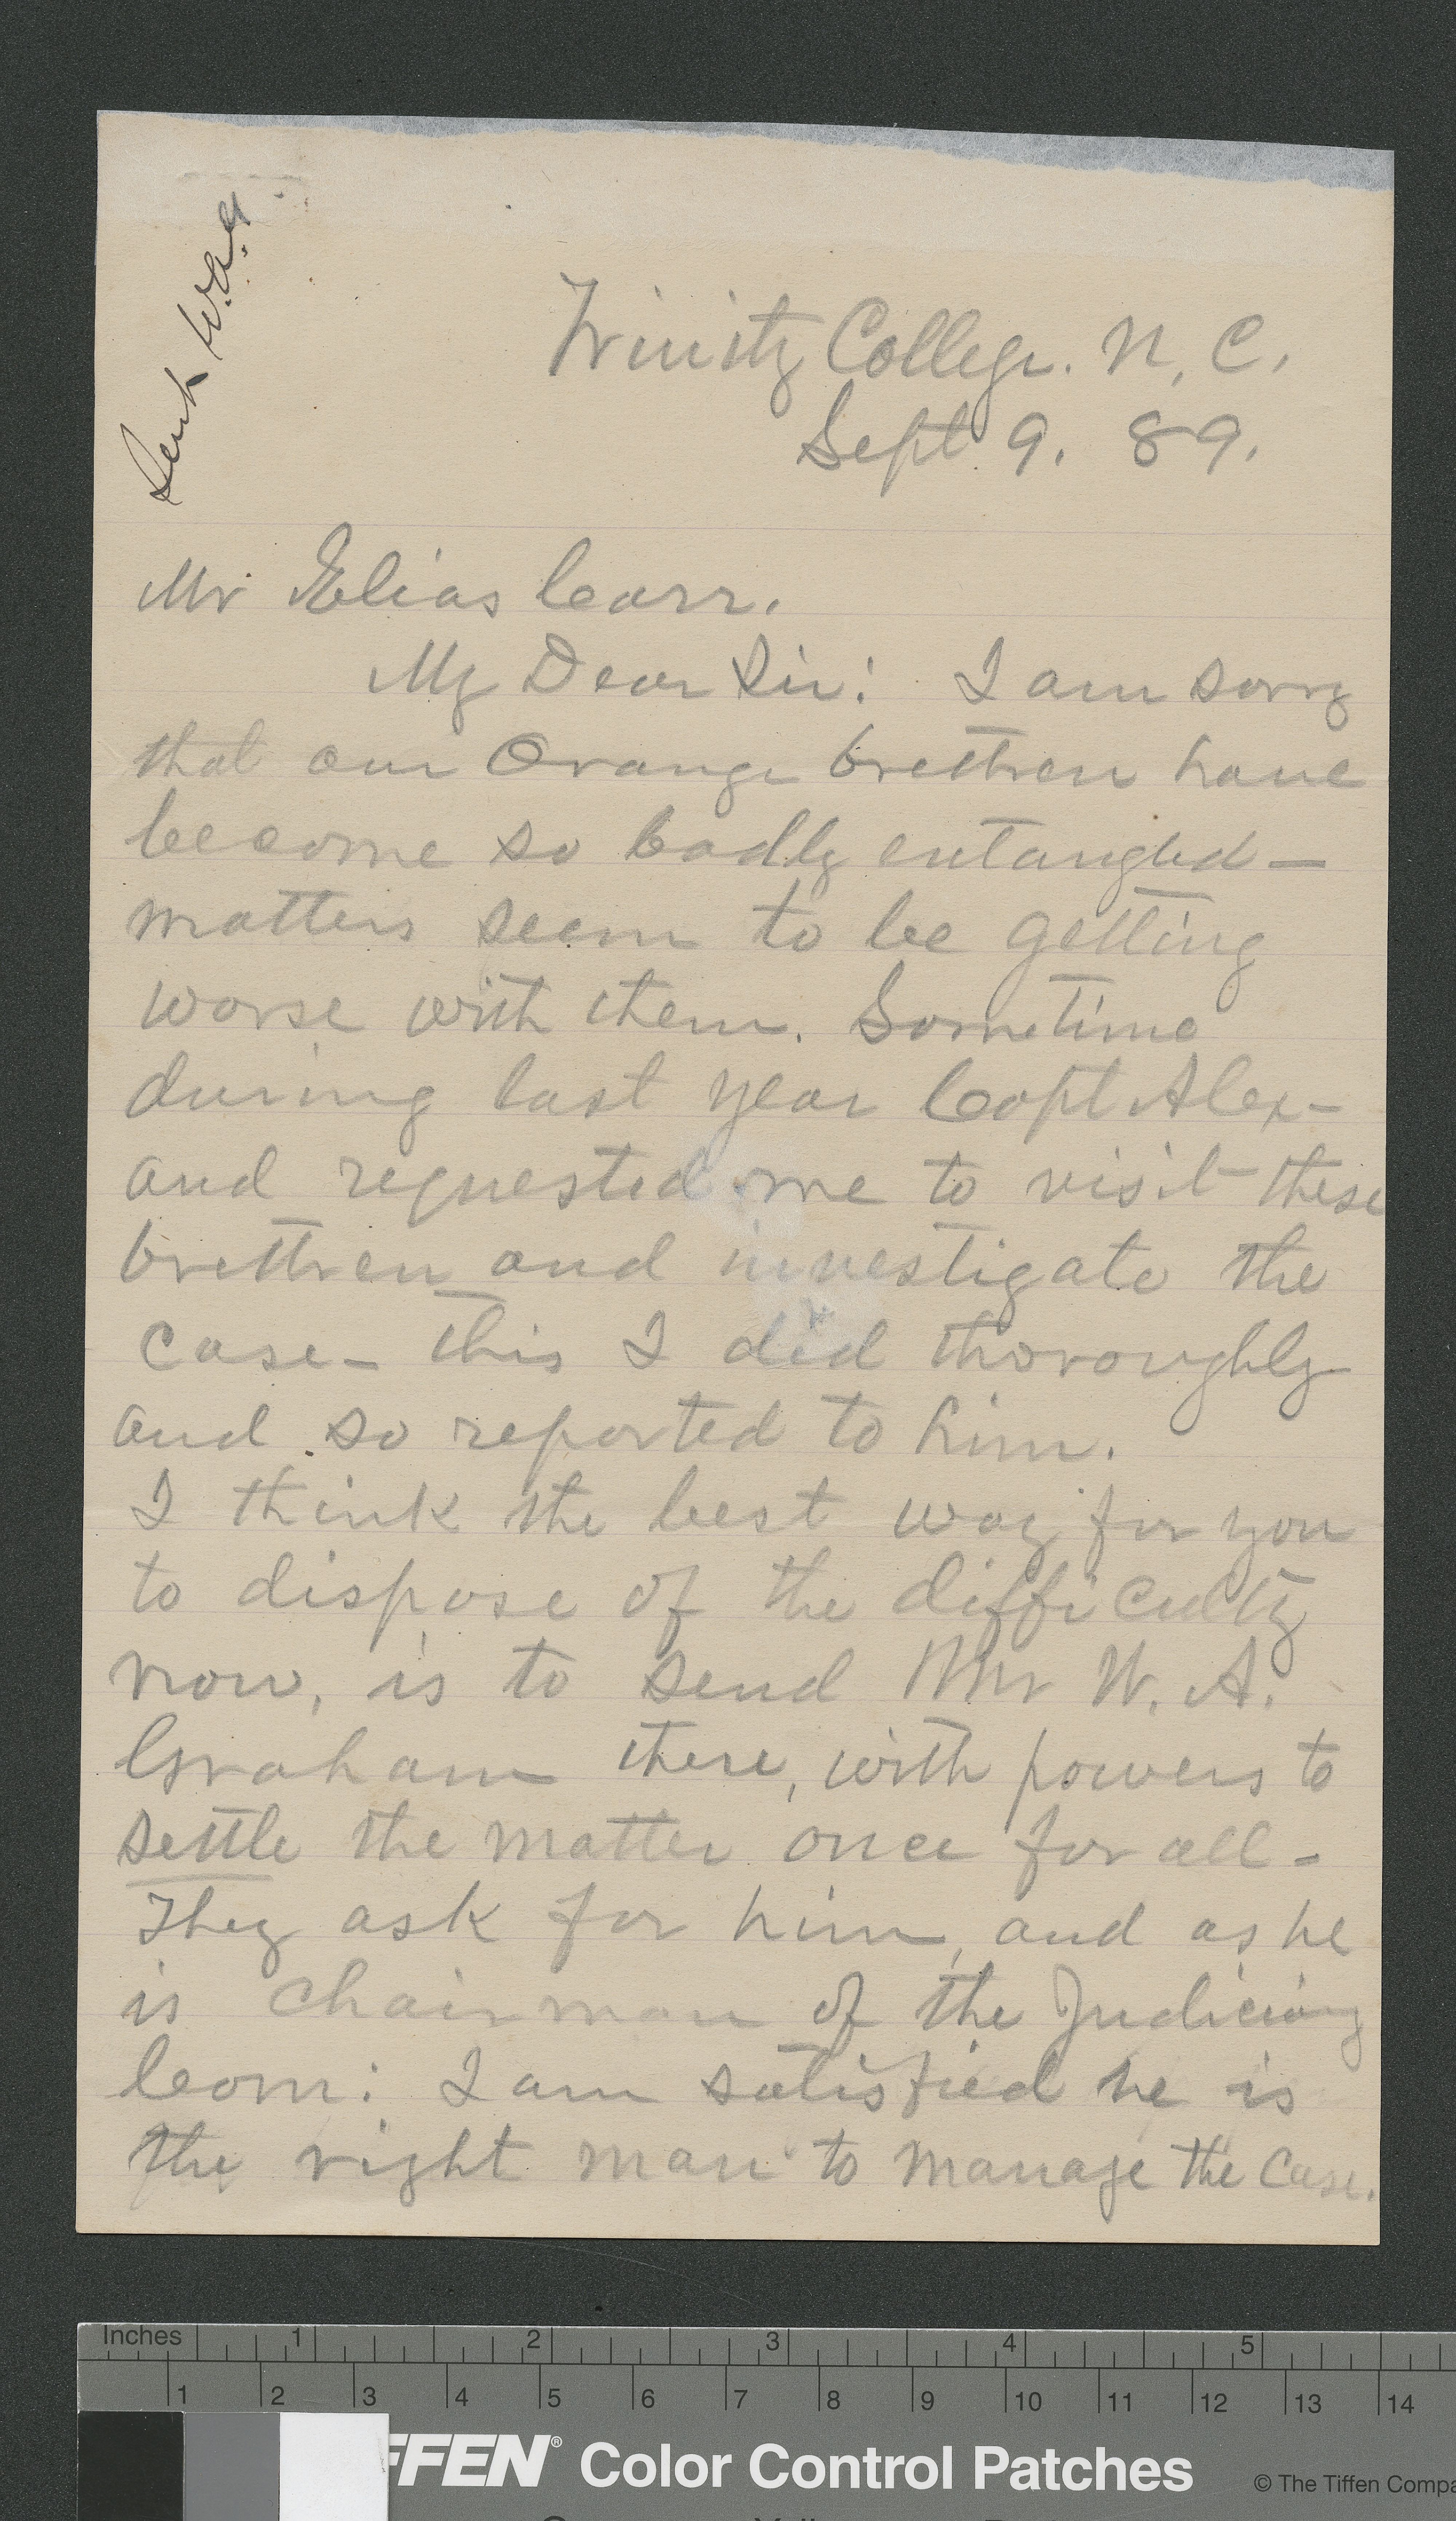 Sent W.A.G.
Trinity College. N. C.
Sept 9. 89.
Mr Elias Carr.
My Dear Sir: I am sorry
that our Orange brethren have
become so badly entangled—
matters seem to be getting
worse with them. Sometime
during last year Capt Alex-
and requested me to visit these
brethren and investigate the
case— this I did thoroughly
and so reported to him.
I think the best way for you
to dispose of the difficulty
now, is to send Mr W. A.
Graham there, with powers to
settle the matter once for all—
They ask for him, and as he
is chairman of the Judiciary
Com: I am satisfied he is
the right man to manage the case.
Inches 1 2 3 4 5
1 2 3 4 5 6 7 8 9 10 11 12 13 14
FFEN® Color Control Patches © The Tiffen Compa